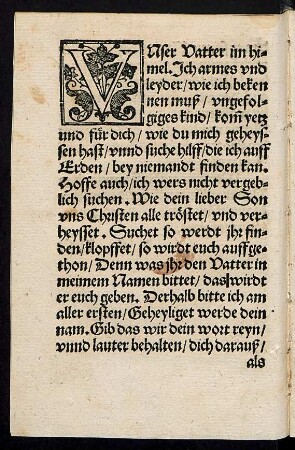 VNser Vatter im hi-
mel. Ich armes vnd
leyder/ wie ich beken
nen muß/ vngefol-
giges kind/ kom̃ yetz
vnd für dich/ wie du mich geheys-
sen hast/ vnnd suche hilff/ die ich auff
Erden/ bey niemandt finden kan.
Hoffe auch/ ich wers nicht vergeb-
lich suchen. Wie dein lieber Son
vns Christen alle tröstet/ vnd ver-
heysset. Suchet so werdt jhr fin-
den/ klopffet/ so wirdt euch auffge-
thon/ Denn was jhr den Vatter in
meinem Namen bittet/ das wirdt
er euch geben. Derhalb bitte ich am
aller ersten/ Geheyliget werde dein
nam. Gib das wir dein wort reyn/
vnnd lauter behalten/ dich darauß/
als